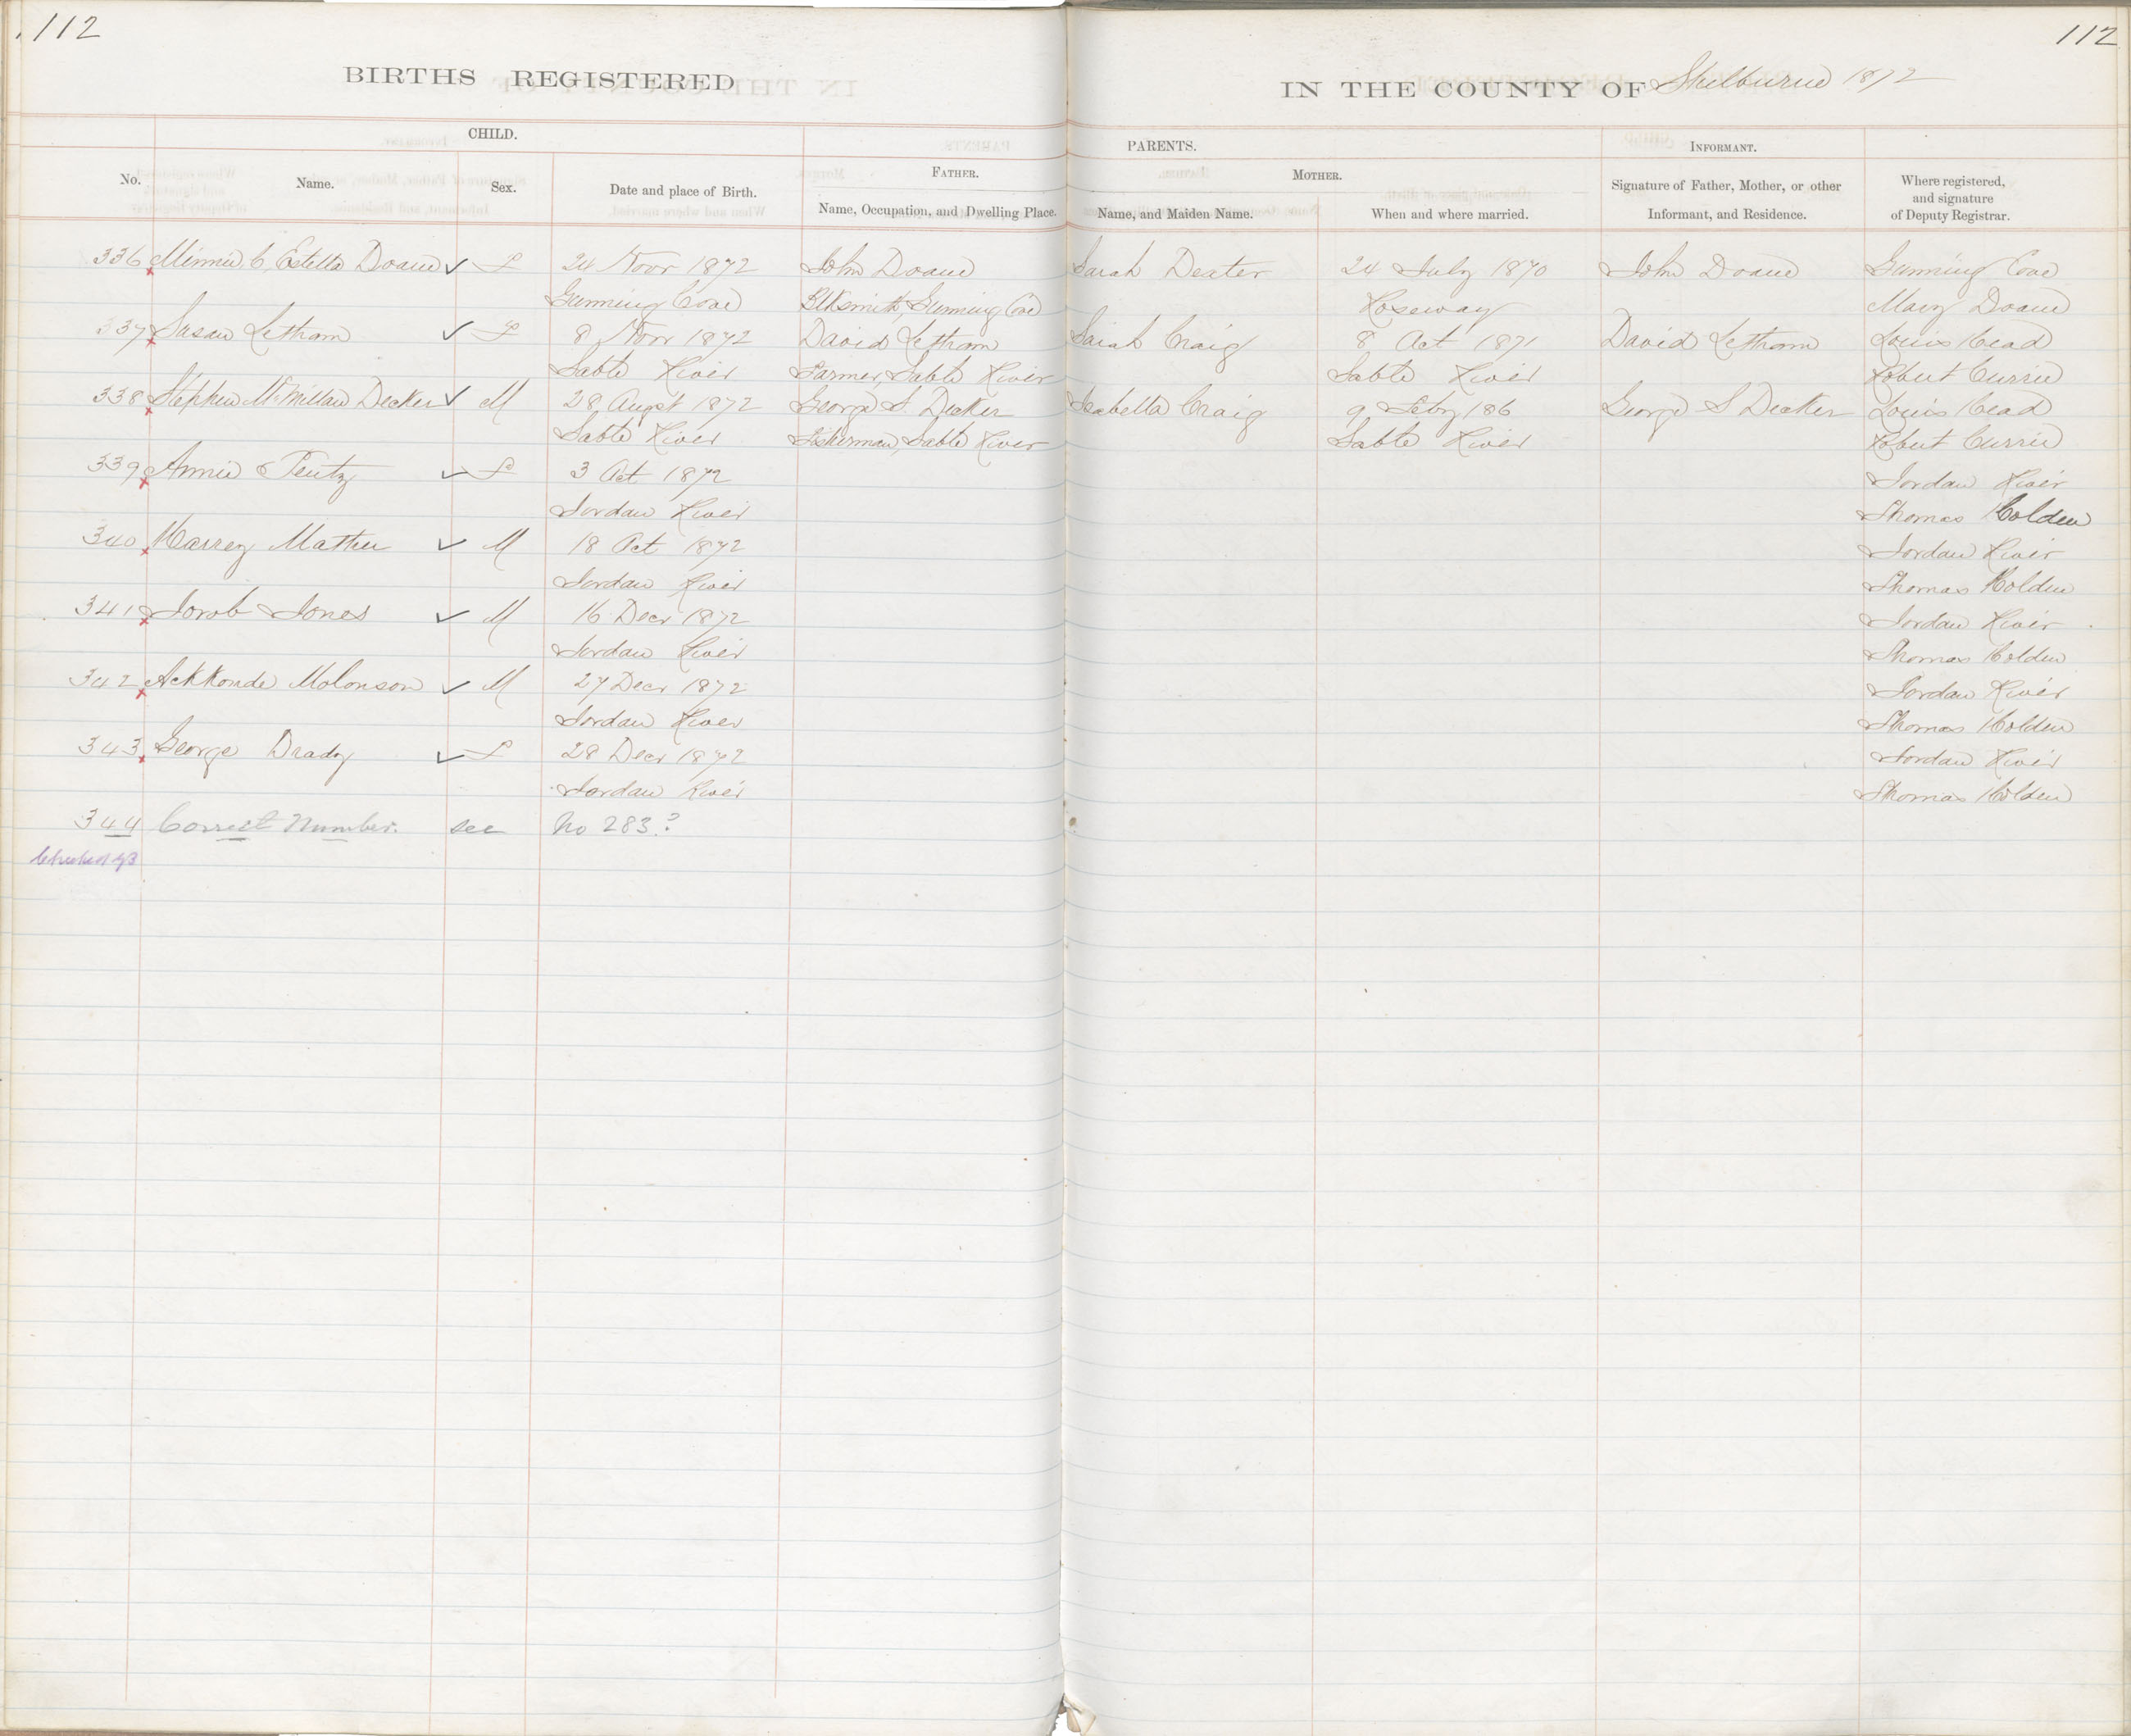 112
112
BIRTHS REGISTERED
IN THE COUNTY OF Shelburne 1872
CHILD.
PARENTS.
INFORMANT.
No.
Name.
Sex.
Date and place of Birth.
FATHER.
Name, Occupation, and Dwelling Place.
MOTHER.
Name, and Maiden Name.
When and where married.
Signature of Father, Mother, or other
Informant, and Residence.
Where registered,
and signature
of Deputy Registrar.
336 Minnie C. Estella Doane ✓ F 24 Novr 1872 John Doane Sarah Dexter 24 July 1870 John Doane Gunning Cove
Gunning Cove Blksmith, Gunning Cove Roseway Mary Doane
337 Susan Letham ✓ F 8 Novr 1872 David Letham Sarah Craig 8 Oct 1871 David Letham Louis Head
Sable River Farmer, Sable River Sable River Robert Currie
338 Stephen McMillan Decker ✓ M 28 Augst 1872 George S. Decker Isabella Craig 9 Feby 186 George S Decker Louis Head
Sable River Fisherman, Sable River Sable River Robert Currie
339 Annie Pentz ✓ F 3 Oct 1872 Jordan River
Jordan River Thomas Holden
340 Harrey Mathee ✓ M 18 Oct 1872 Jordan River
Jordan River Thomas Holden
341 Jorob Jones ✓ M 16 Decr 1872 Jordan River
Jordan River Thomas Holden
342 Molonson ✓ M 27 Decr 1872 Jordan River
Jordan River Thomas Holden
343 George Drady ✓ F 28 Decr 1872 Jordan River
Jordan River Thomas Holden
344 Correct Number. see No 283.?
Checked